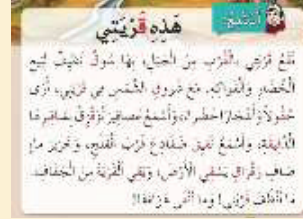 أَسْتَمِعُ
هَذِهِ قَرْيَتِي
تَقَعُ قَرْيَتِي بِالْقُرْبِ مِنَ الْجَبَلِ، بِهَا سُوقٌ نَظِيفٌ لِبَيْعِ
الْخُضَرِ وَالْفَوَاكِهِ. مَعَ شُرُوقِ الشَّمْسِ فِي قَرْيَتِي، أَرَى
حُقُولًا وَأَشْجَارًا خَضْرَاءَ، وَأَسْمَعُ عَصَافِيرَ تُزَقْزِقُ
وَأَسْمَعُ نَقِيقَ ضَفَادِعَ قُرْبَ وَخَرِيرَ مَاءٍ
صَافٍ رَقْرَاقٍ يَسْقِي الْأَرْضَ، وَيَقِي الْقَرْيَةَ مِنَ الْجَفَافِ.
مَا أَلْطَفَ قَرْيَتِي! وَمَا أَنْقَى هَوَاءَهَا!